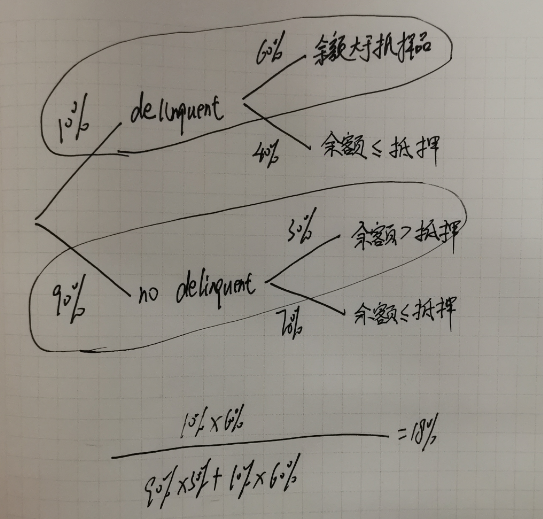 60% 余额大于抵押品
10% delinquent
40% 余额≤抵押
30% 余额>抵押
90% no delinquent
70% 余额≤抵押
10%×60%
=18%
90%×30%+10%×60%